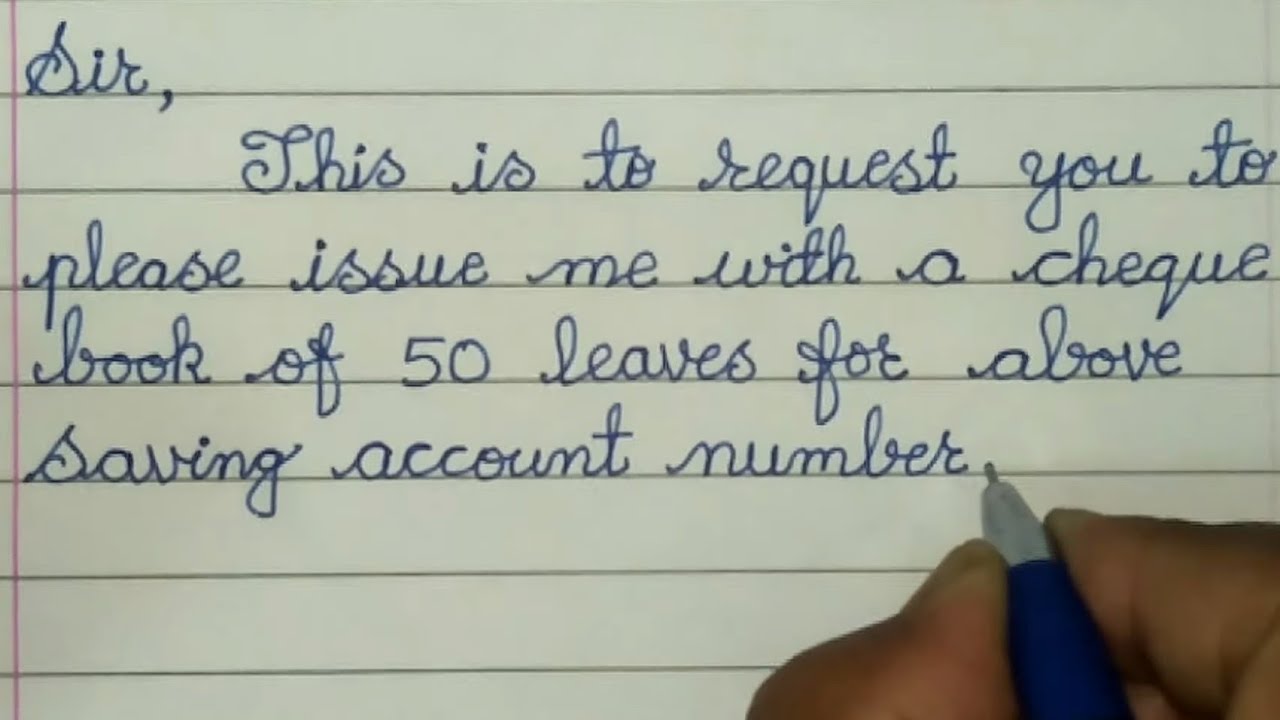 Sir,
This is to request you to
please issue me with a cheque
book of 50 leaves for above
saving account number.